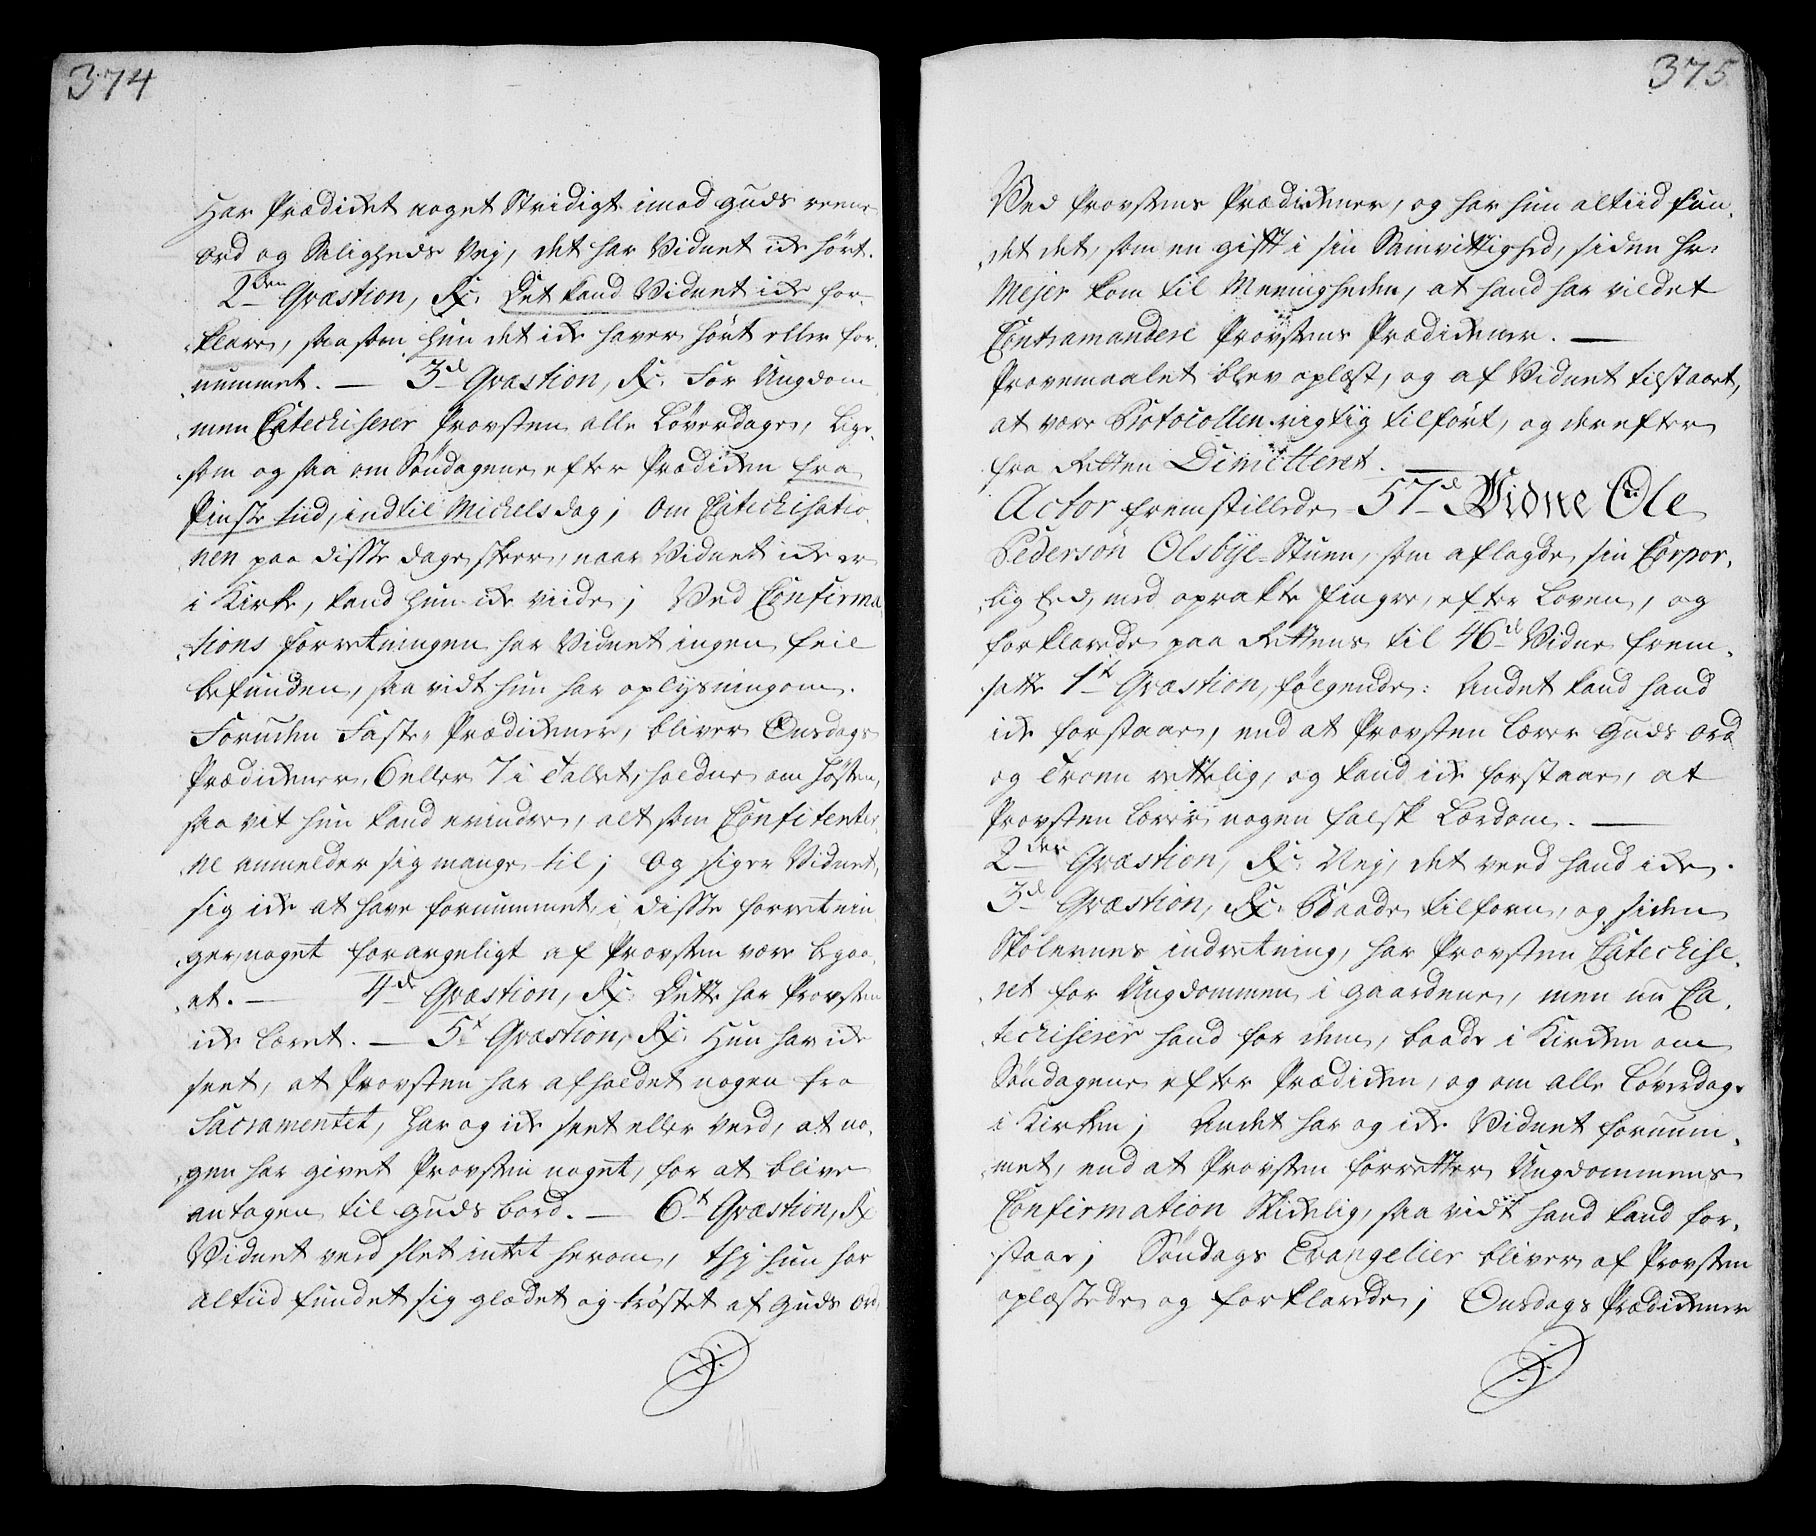 374
Har Prædicket noget Stridigt imod Guds reene
Ord og Saligheds Vej, det har Vidnet icke hört.
2den Qvæstion, Rx: Det kand Vidnet icke for-
klare, saasom hun det icke haver hört eller for-
nummet. — 3de Qvæstion, Rx: For Ungdom-
men Catechiserer Provsten alle Löverdage, lige-
som og saa om Söndagene efter Prædicken fra
Pinste tiid, indtil Michelsdag; Om Catechisatio-
nen paa disse dage skeer, naar Vidnet icke er
i Kirke, kand hun icke viide; Ved Confirma-
tions forretningen har Vidnet ingen feil
befunden, saavidt hun har oplysning om.
Foruden Faste-Prædickener, bliver Onsdags
Prædickener, 6 eller 7 i Tallet, holdne om Hösten,
saa vit hun kand erindre, alt som Confitenter-
ne anmelder sig mange til; Og siger Vidnet,
sig icke at have fornummet, i disse forretnin-
ger, noget forargeligt af Provsten være begaa-
at. — 4de Qvæstion, Rx: Dette har Provsten
icke læret. — 5te Qvæstion, Rx: Hun har icke
seet, at Provsten har afholdet nogen fra
Sacramentet, har og icke seet eller veed, at no-
gen har givet Provsten noget, for at blive
antagen til Guds bord. — 6te Qvæstion, Rx
Vidnet veed slet intet herom, thj hun har
altiid fundet sig glædet og tröstet af Guds Ord,
375
Ved Provstens Prædickener, og har hun altiid fun-
det det, som en gift i sin Samvittighed, siden Hr:
Mejer kom til Meenigheden, at hand har villdet
Contramandere Provstens Prædickener. —
Provemaalet blev oplæst, og af Vidnet tilstaaet,
at være Protocollen rigtig tilfört, og derefter
fra Retten Dimitteret. —
Actor fremstillede 57de Vidne Ole
Pedersön Olsbye-Stuen, som aflagde sin Corpor-
lig Eed, med oprakte fingre, efter Loven, og
forklarede paa Rettens til 46de Vidne frem-
satte 1te Qvæstion, følgende: Andet kand hand
icke forstaae, end at Provsten lærer Guds Ord
og Troen rettelig, og kand icke forstaae, at
Provsten lærer nogen falsk Lærdom. —
2den Qvæstion, Rx: Nej, det veed hand icke.
3de Qvæstion, Rx: Baade tilforn, og siden
Skolernes indretning, har Provsten Catechise-
ret for Ungdommen i gaardene, men nu Ca-
techiserer hand for dem, baade i Kircken om
Söndagene efter Prædicken, og om alle Löverdage
i Kircken; Andet har og icke Vidnet fornum-
met, end at Provsten forretter Ungdommens
Confirmation Skickelig, saa vidt hand kand for-
staae; Söndags Evangelier bliver af Provsten
oplæste og forklarede; Onsdags Prædickener